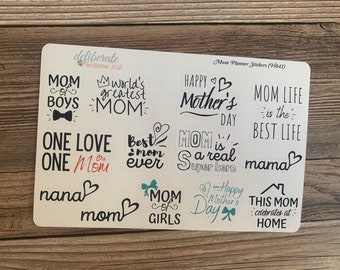 deliberate
Mom Planner Stickers
MOM
OF
BOYS
world's
greatest
MOM
HAPPY
Mother's
DAY
MOM LIFE
is the
BEST LIFE
ONE LOVE
ONE Mom
Best
mom
ever
MOM
IS
a real
Super hero
mama
nana
mom
MOM
of
GIRLS
Happy
Mother's
Day
THIS MOM
celebrates at
HOME